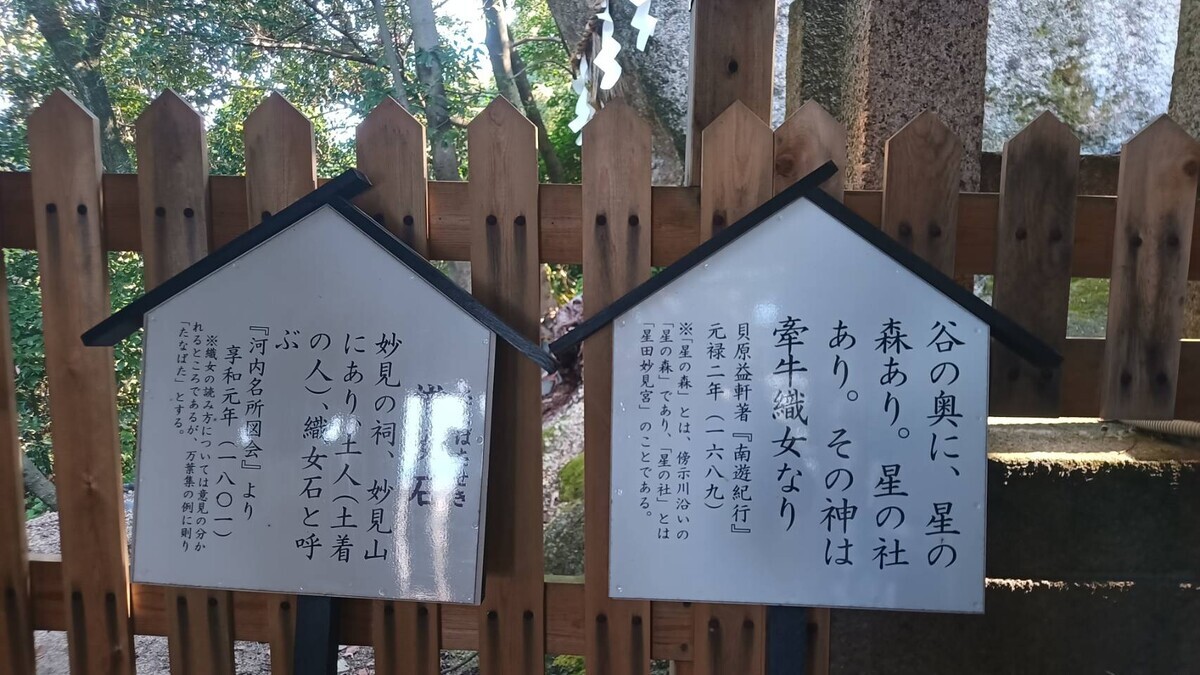 谷の奥に、星の
森あり。星の社
あり。その神は
牽牛織女なり
貝原益軒著『南遊紀行』
元禄二年(一六八九)
※「星の森」とは、傍示川沿いの
「星の森」であり、「星の社」とは
「星田妙見宮」のことである。
妙見の祠、妙見山
にあり、土人(土着
の人)、織女石と呼
ぶ
『河内名所図会』より
享和元年(一八〇一)
※織女の読み方については意見の分か
れるところであるが、万葉集の例に則り
「たなばた」とする。